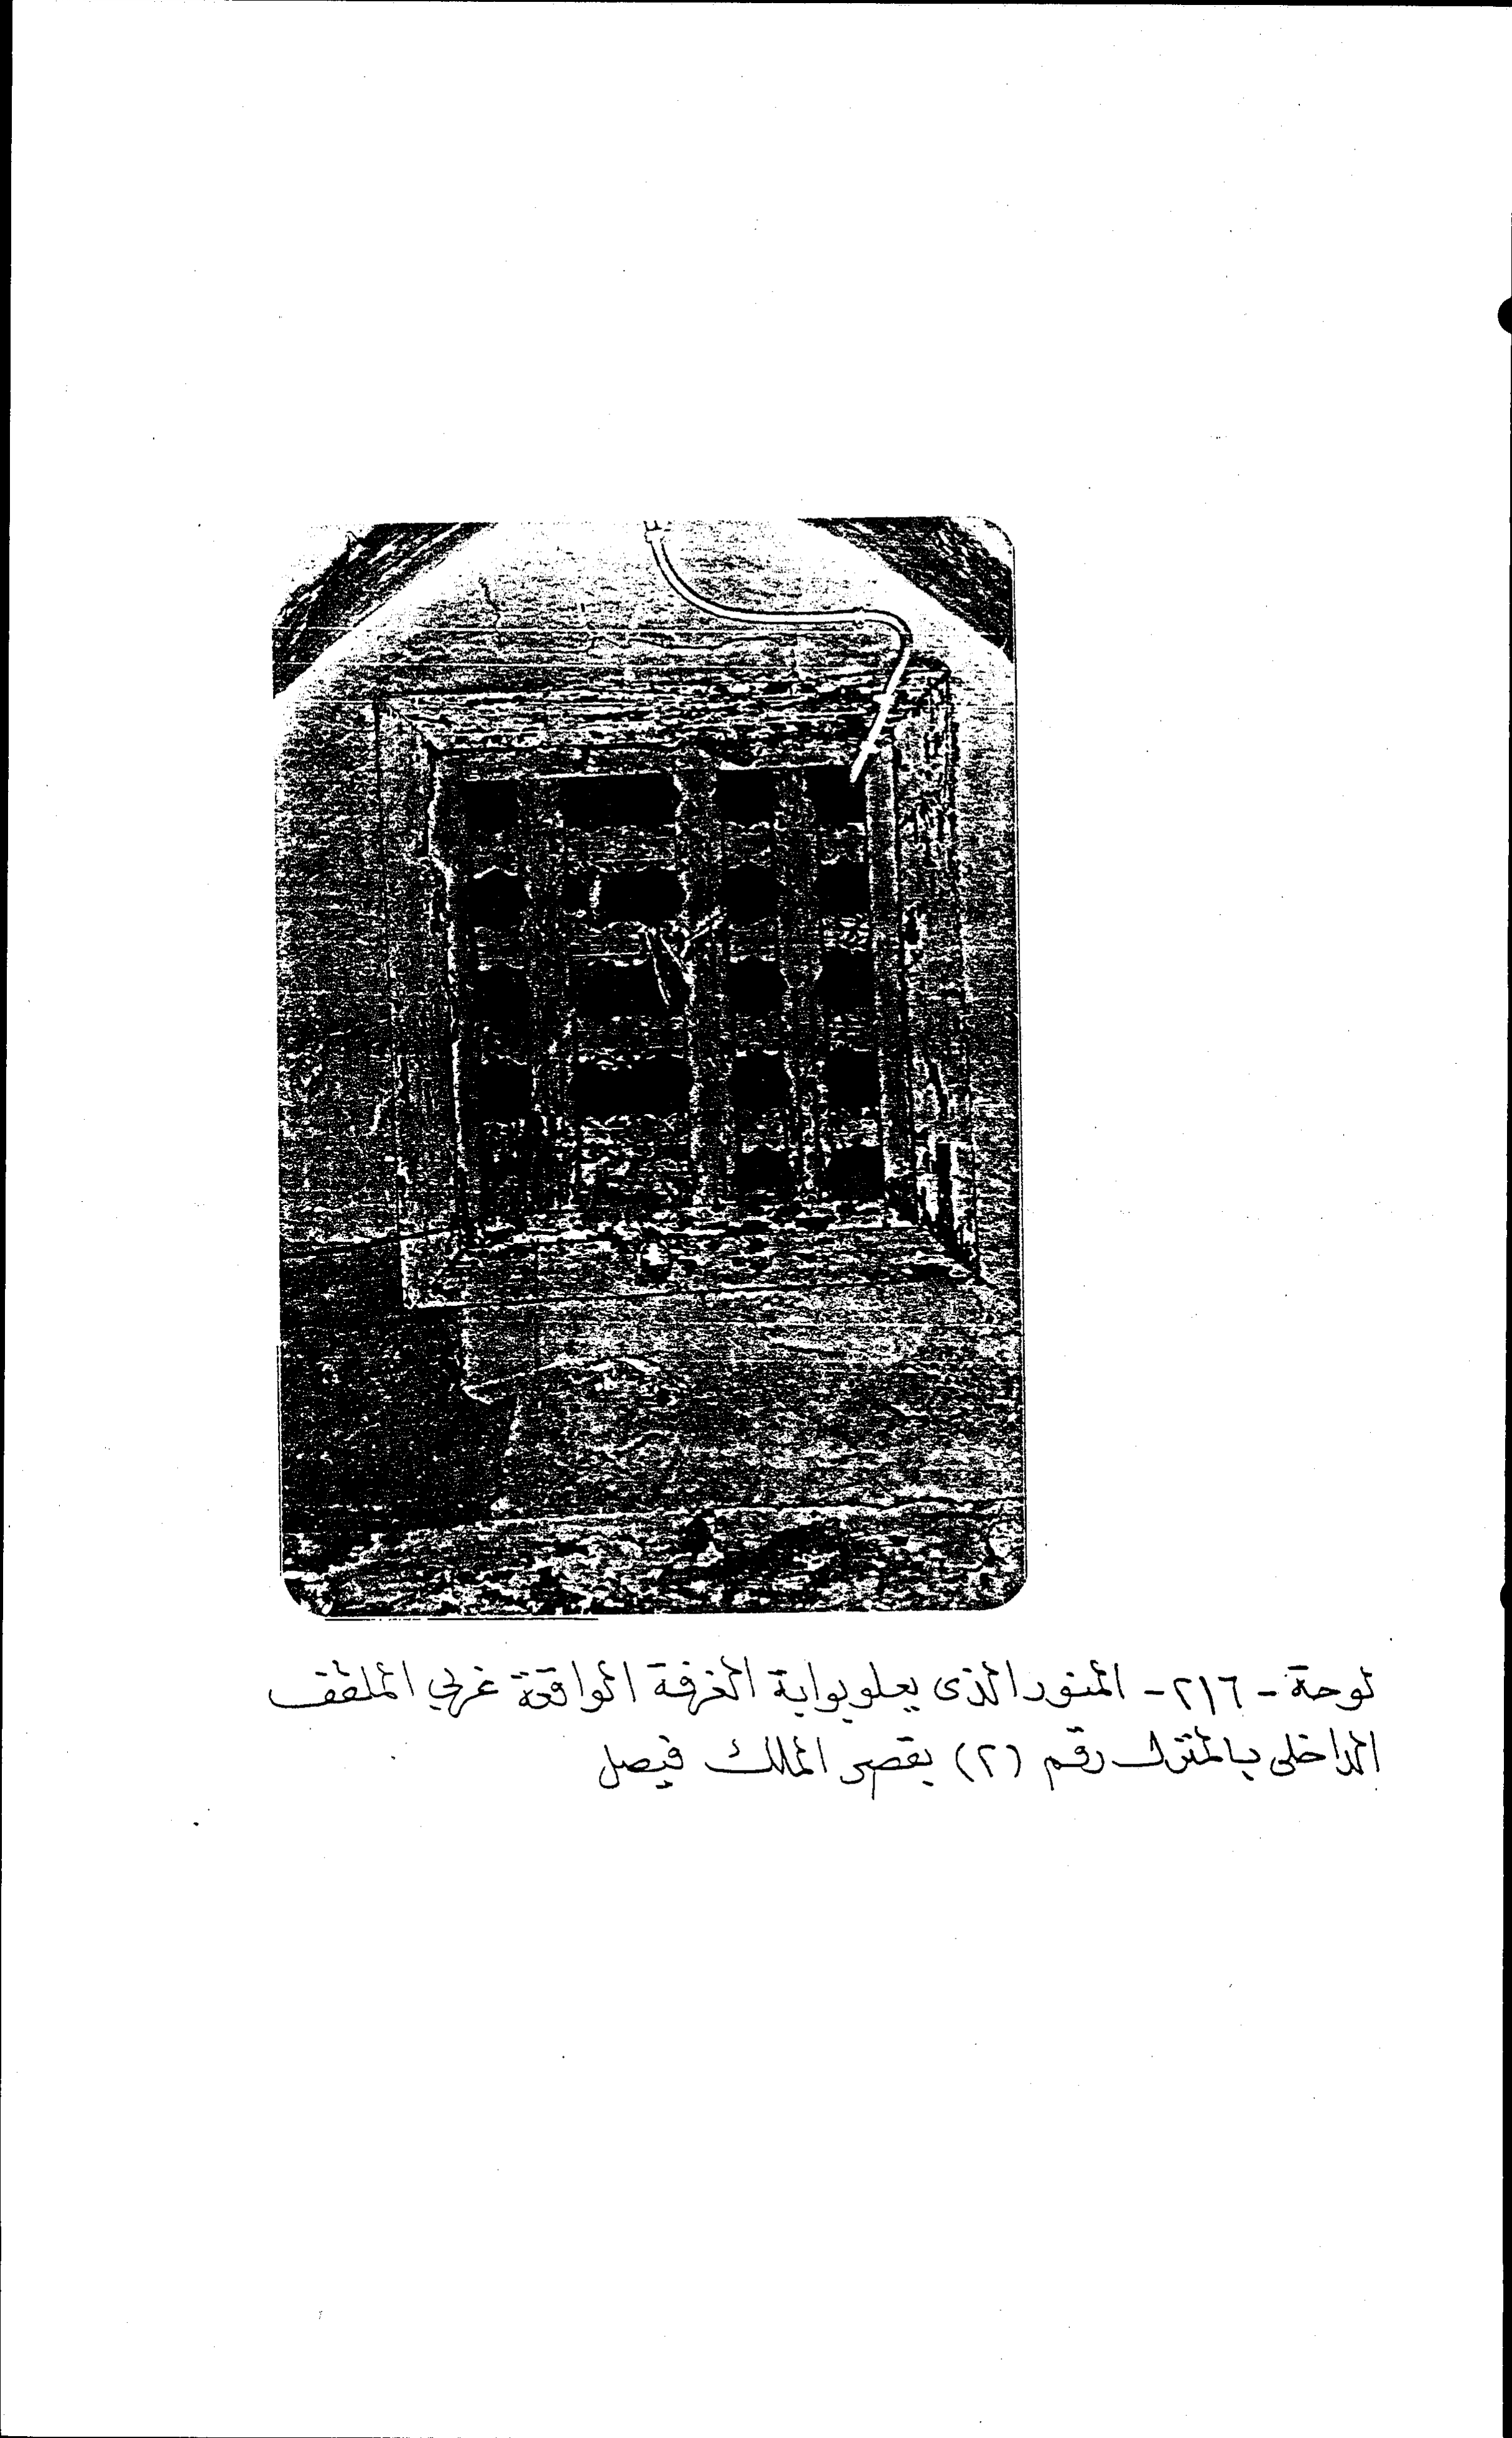 لوحة - ٢١٦ - المنور الذى يعلو بوابة الغرفة الواقعة غربي الملقف
الداخلى بالمنزل رقم (٢) بقصر الملك فيصل